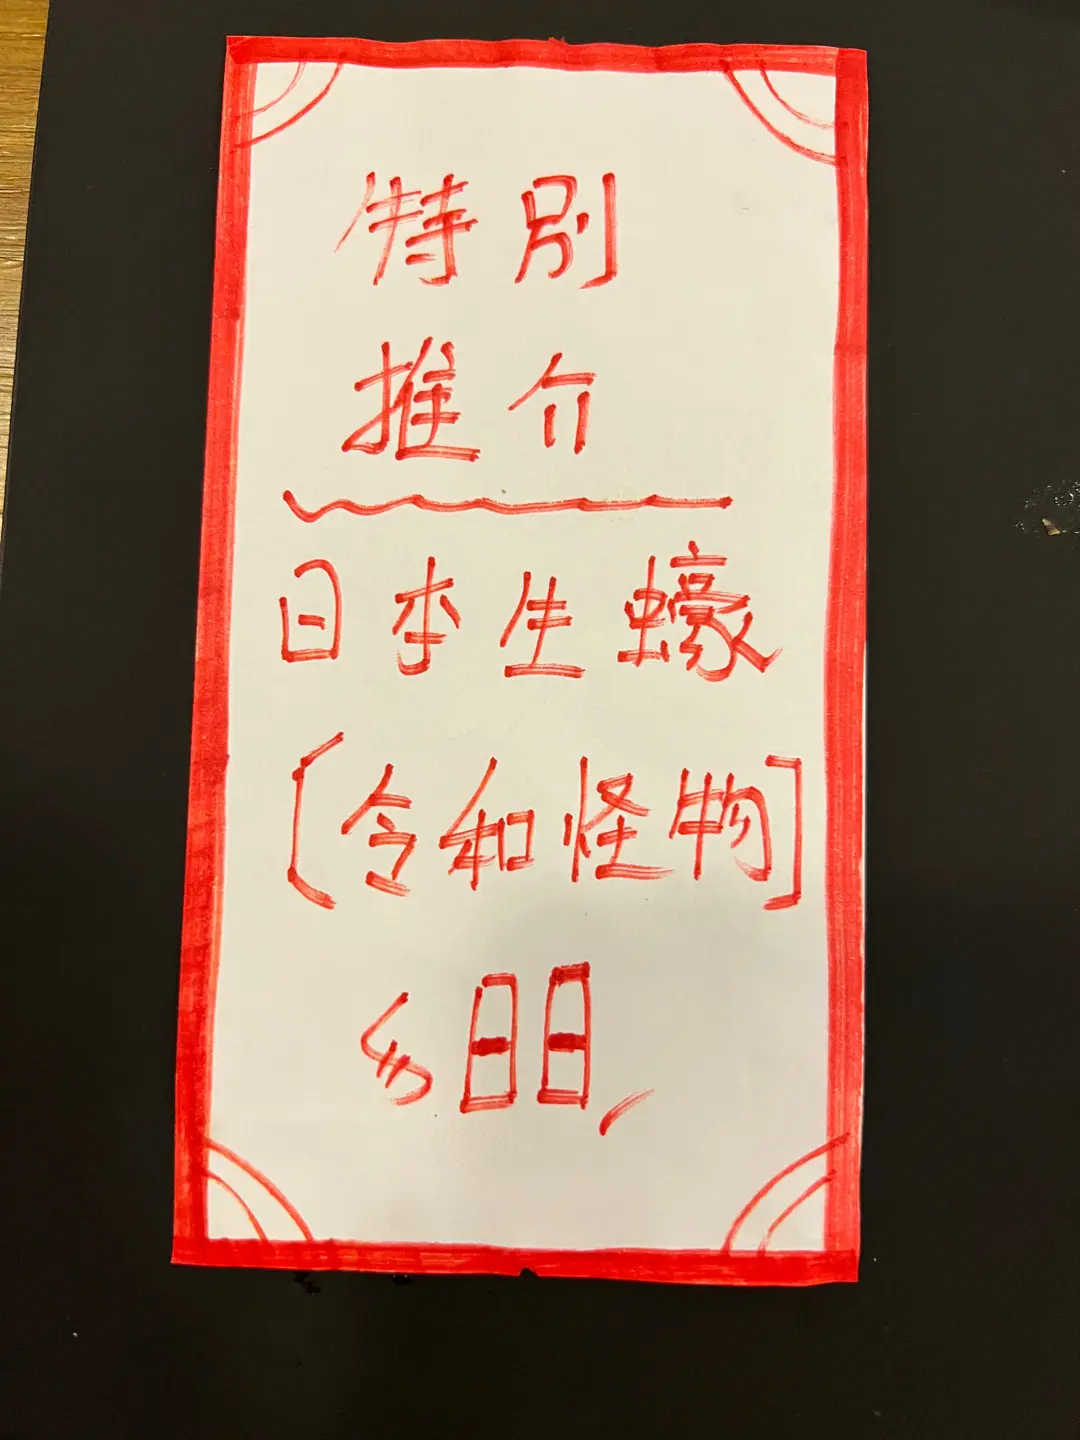 特別
推介
日本生蠔
[令和怪物]
$88/